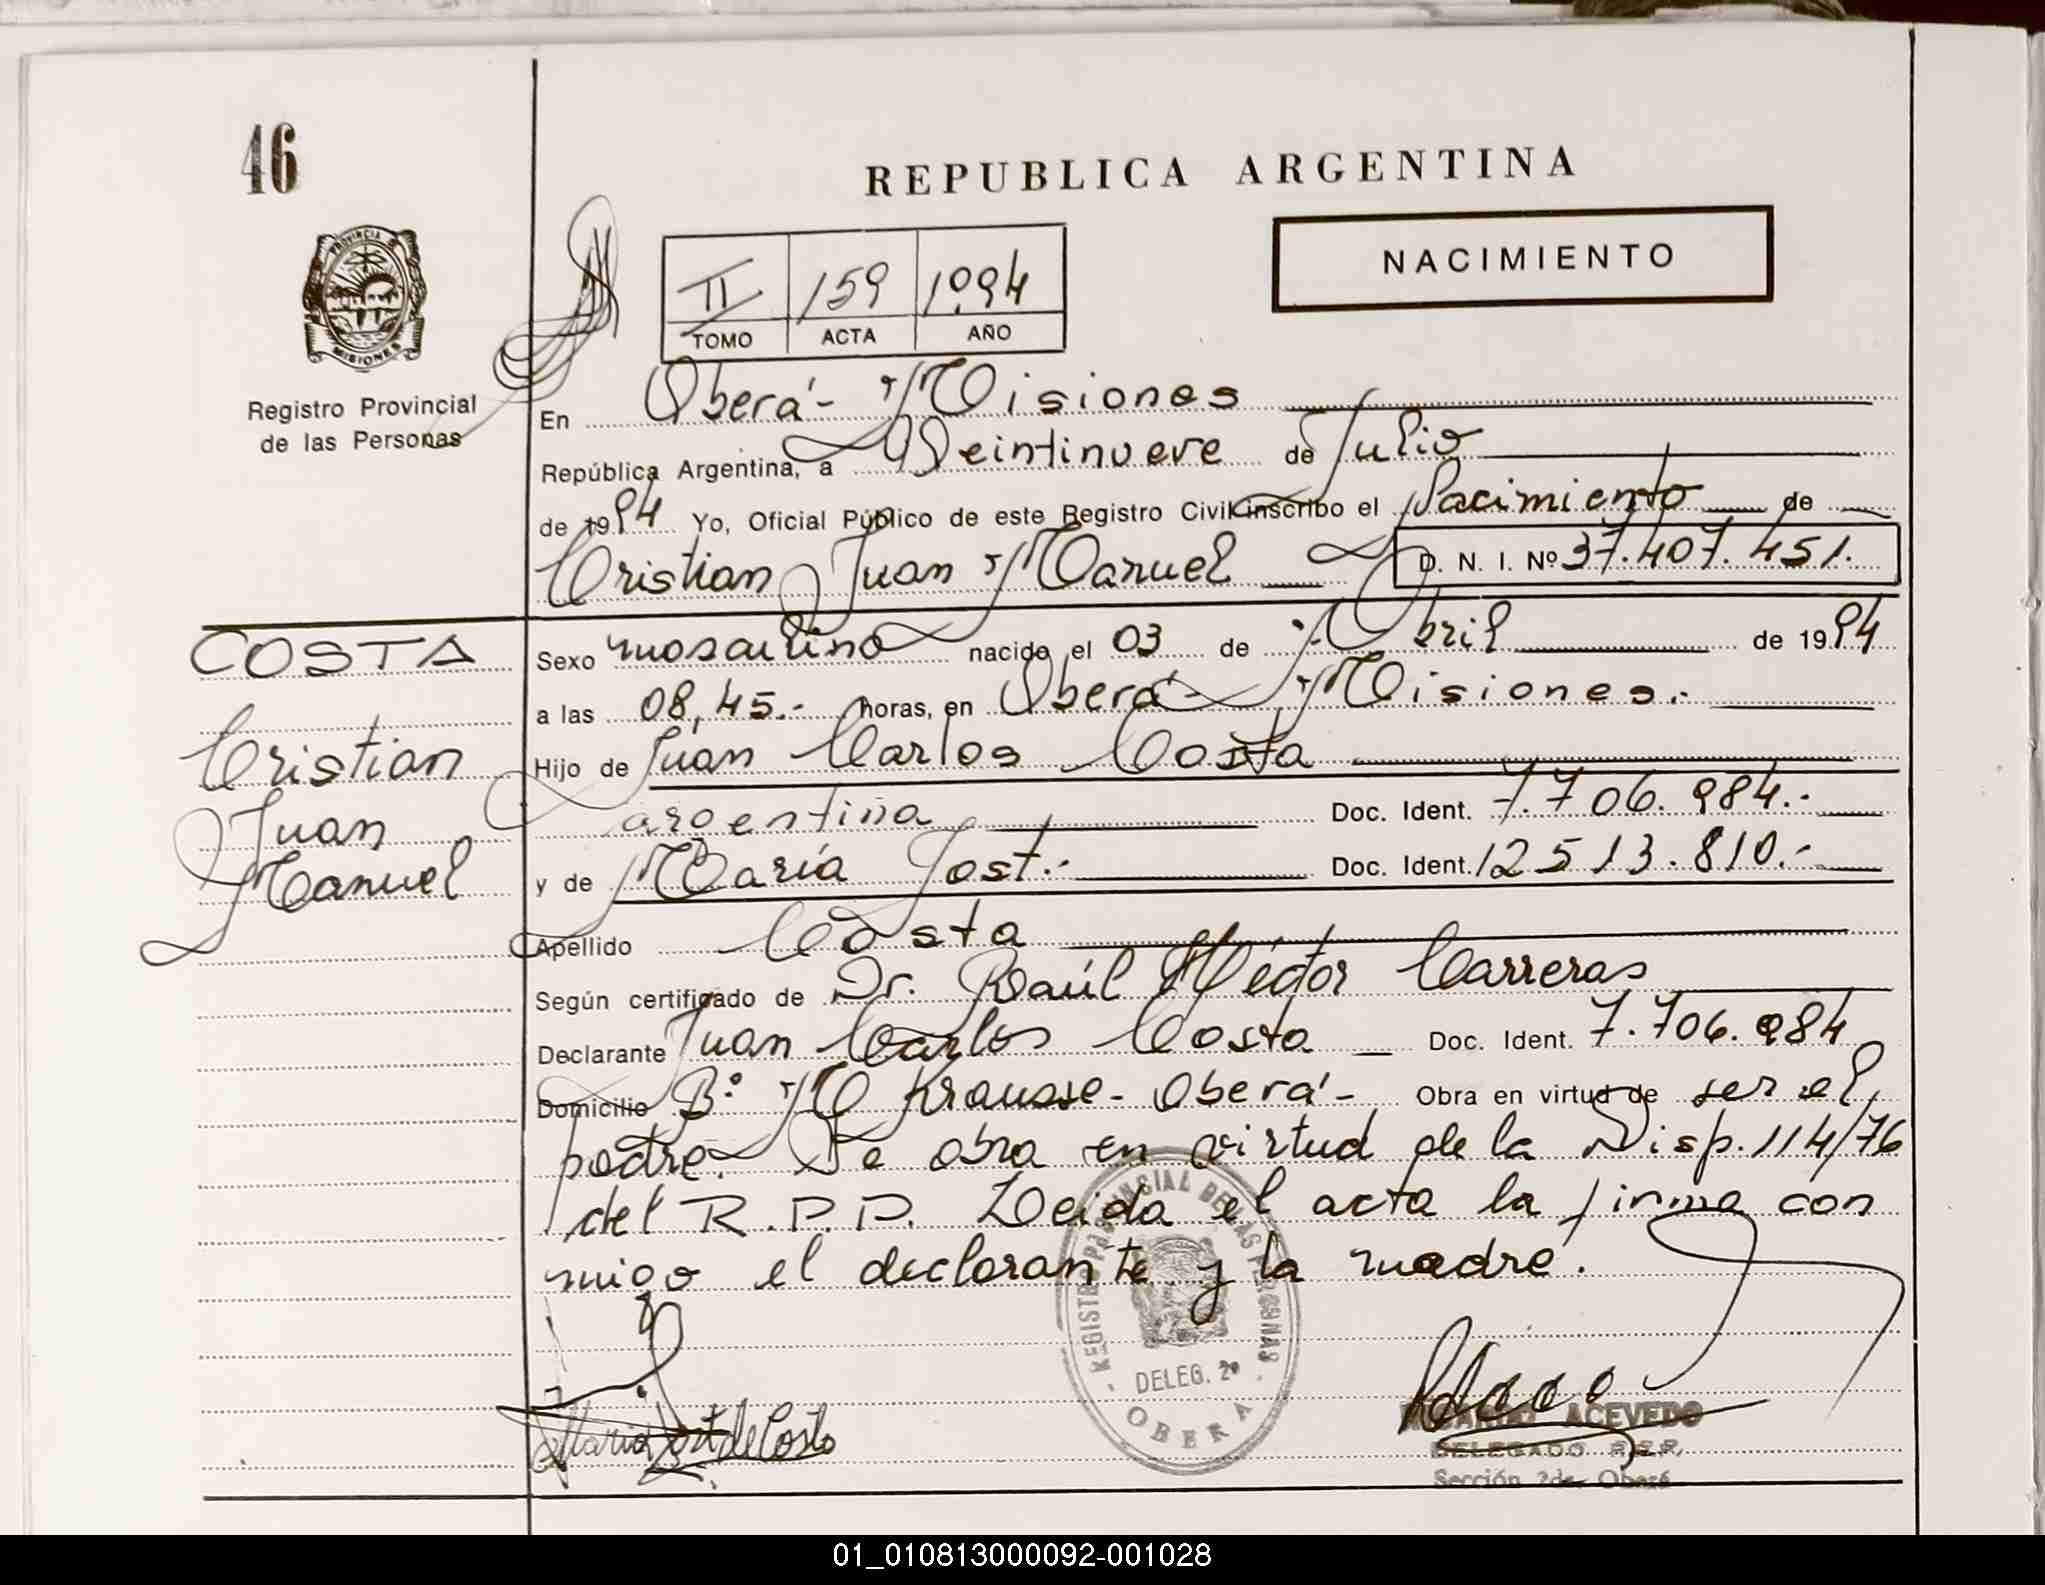 46
REPUBLICA ARGENTINA
NACIMIENTO
II 159 1994
TOMO ACTA AÑO
PROVINCIA DE
MISIONES
Registro Provincial
de las Personas
En Oberá - Misiones
República Argentina, a Veintinueve de Julio
de 1994 Yo, Oficial Público de este Registro Civil inscribo el Nacimiento de
Cristian Juan Manuel D. N. I. Nº 37.407.451.
COSTA
Cristian
Juan
Manuel
Sexo masculino nacido el 03 de Abril de 1994
a las 08,45.- horas, en Oberá - Misiones.-
Hijo de Juan Carlos Costa
argentina Doc. Ident. 7.706.984.-
y de María Jost.- Doc. Ident. 12513.810.-
Apellido Costa
Según certificado de Dr. Raúl Héctor Carreras
Declarante Juan Carlos Costa Doc. Ident. 7.706.984
Domicilio Bº M Krausse - Oberá - Obra en virtud de ser el
padre. Se obra en virtud de la Disp. 114/76
del R.P.P. Leida el acta la firma con
migo el declarante y la madre.
REGISTRO PROVINCIAL DE LAS PERSONAS
DELEG. 2ª
OBERA
Maria Jost de Costa
ACEVEDO
DELEGADO R.P.P.
Sección 2da Oberá
01_010813000092-001028